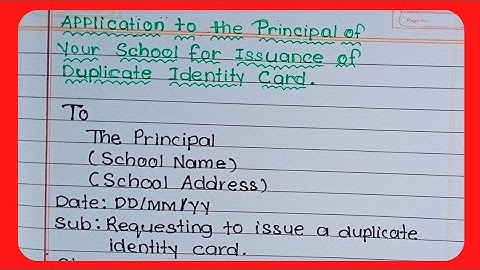 Application to the Principal of
Your School for Issuance of
Duplicate Identity Card.
To
The Principal
(School Name)
(School Address)
Date: DD/MM/YY
Sub: Requesting to issue a duplicate
identity card.